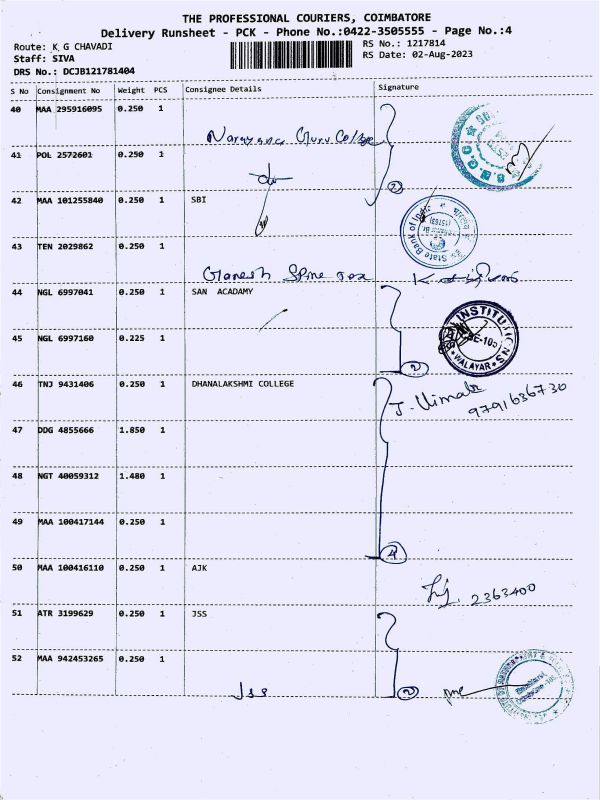 THE PROFESSIONAL COURIERS, COIMBATORE
Delivery Runsheet - PCK - Phone No.:0422-3505555 - Page No.:4
Route: K G CHAVADI
RS No.: 1217814
Staff: SIVA
RS Date: 02-Aug-2023
DRS No.: DCJB121781404
S No Consignment No Weight PCS Consignee Details Signature
40 MAA 295916095 0.250 1
Narayana Guru College
41 POL 2572601 0.250 1
2
42 MAA 101255840 0.250 1 SBI
State Bank of India
43 TEN 2029862 0.250 1
Ganesh Spine Tex
44 NGL 6997041 0.250 1 SAN ACADAMY
INSTITUTIONS
45 NGL 6997160 0.225 1
WALAYAR
2
46 TNJ 9431406 0.250 1 DHANALAKSHMI COLLEGE
J. Vimala
9791636730
47 DDG 4855666 1.850 1
48 NGT 40059312 1.480 1
49 MAA 100417144 0.250 1
4
50 MAA 100416110 0.250 1 AJK
2363400
51 ATR 3199629 0.250 1 JSS
52 MAA 942453265 0.250 1
Jss
2